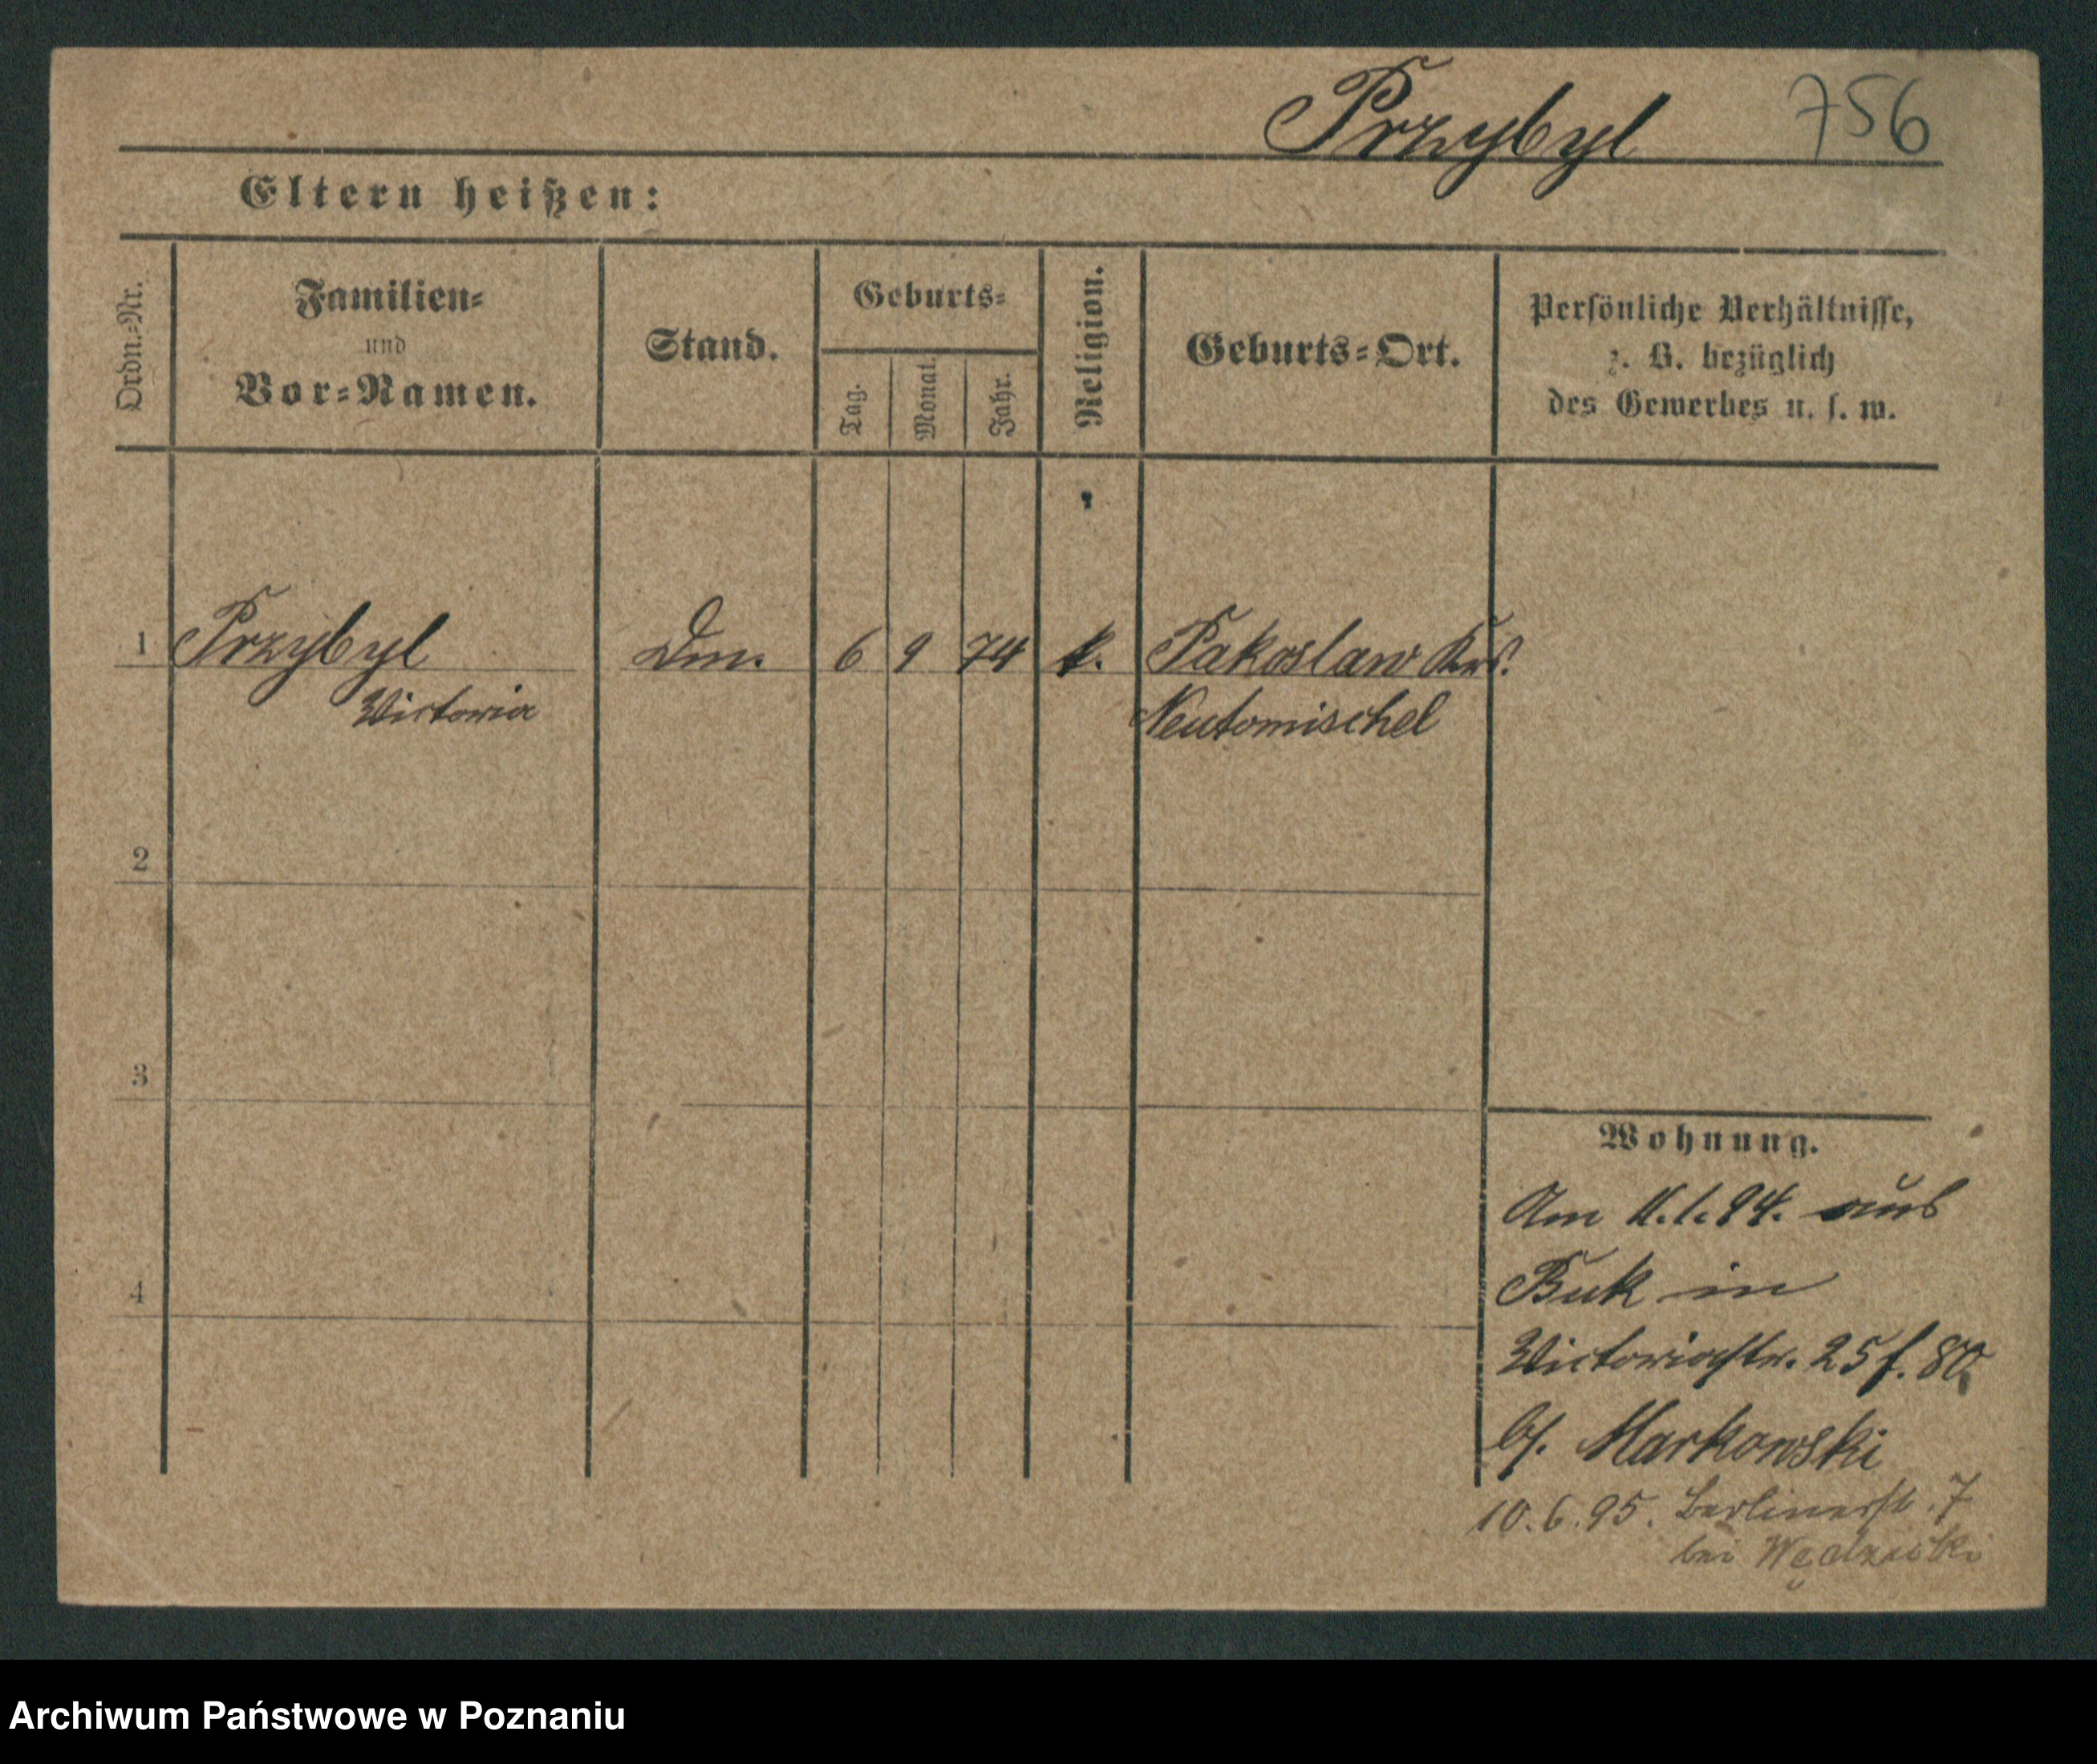 Przybyl 756
Eltern heißen:
Ordn.-Nr.
Familien-
und
Vor-Namen.
Stand.
Geburts-
Tag.
Monat.
Jahr.
Religion.
Geburts-Ort.
Persönliche Verhältnisse,
z. B. bezüglich
des Gewerbes u. s. w.
1 Przybyl 6 9 74 k. Pakoslaw Krs.
Victoria Neutomischel
2
3
4
Wohnung.
Am 11.1.94. aus
Buk in
Victoriastr. 25 f. 80
bei Markowski
10.6.95. Berlinerstr. 7
bei
Archiwum Państwowe w Poznaniu